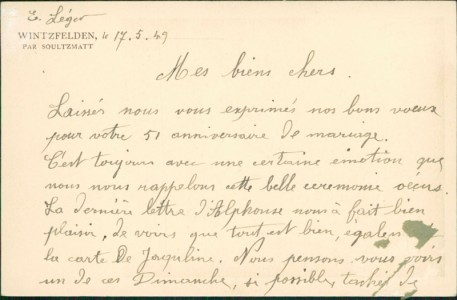 E. Léger
WINTZFELDEN, le 17.5.49
PAR SOULTZMATT
Mes biens chers.
Laisér nous vous exprimés nos bons voeux
pour votre 51 anniversaire de mariage.
C'est toujours avec une certaine émotion que
nous nous rappelons cette belle ceremonie
La dernière lettre d'Alphonse nous à fait bien
plaisir, de voirs que tout est bien,
la carte De Jaquline. Nous pensons vous voirs
un de ces Dimanche, si possible, tachés de